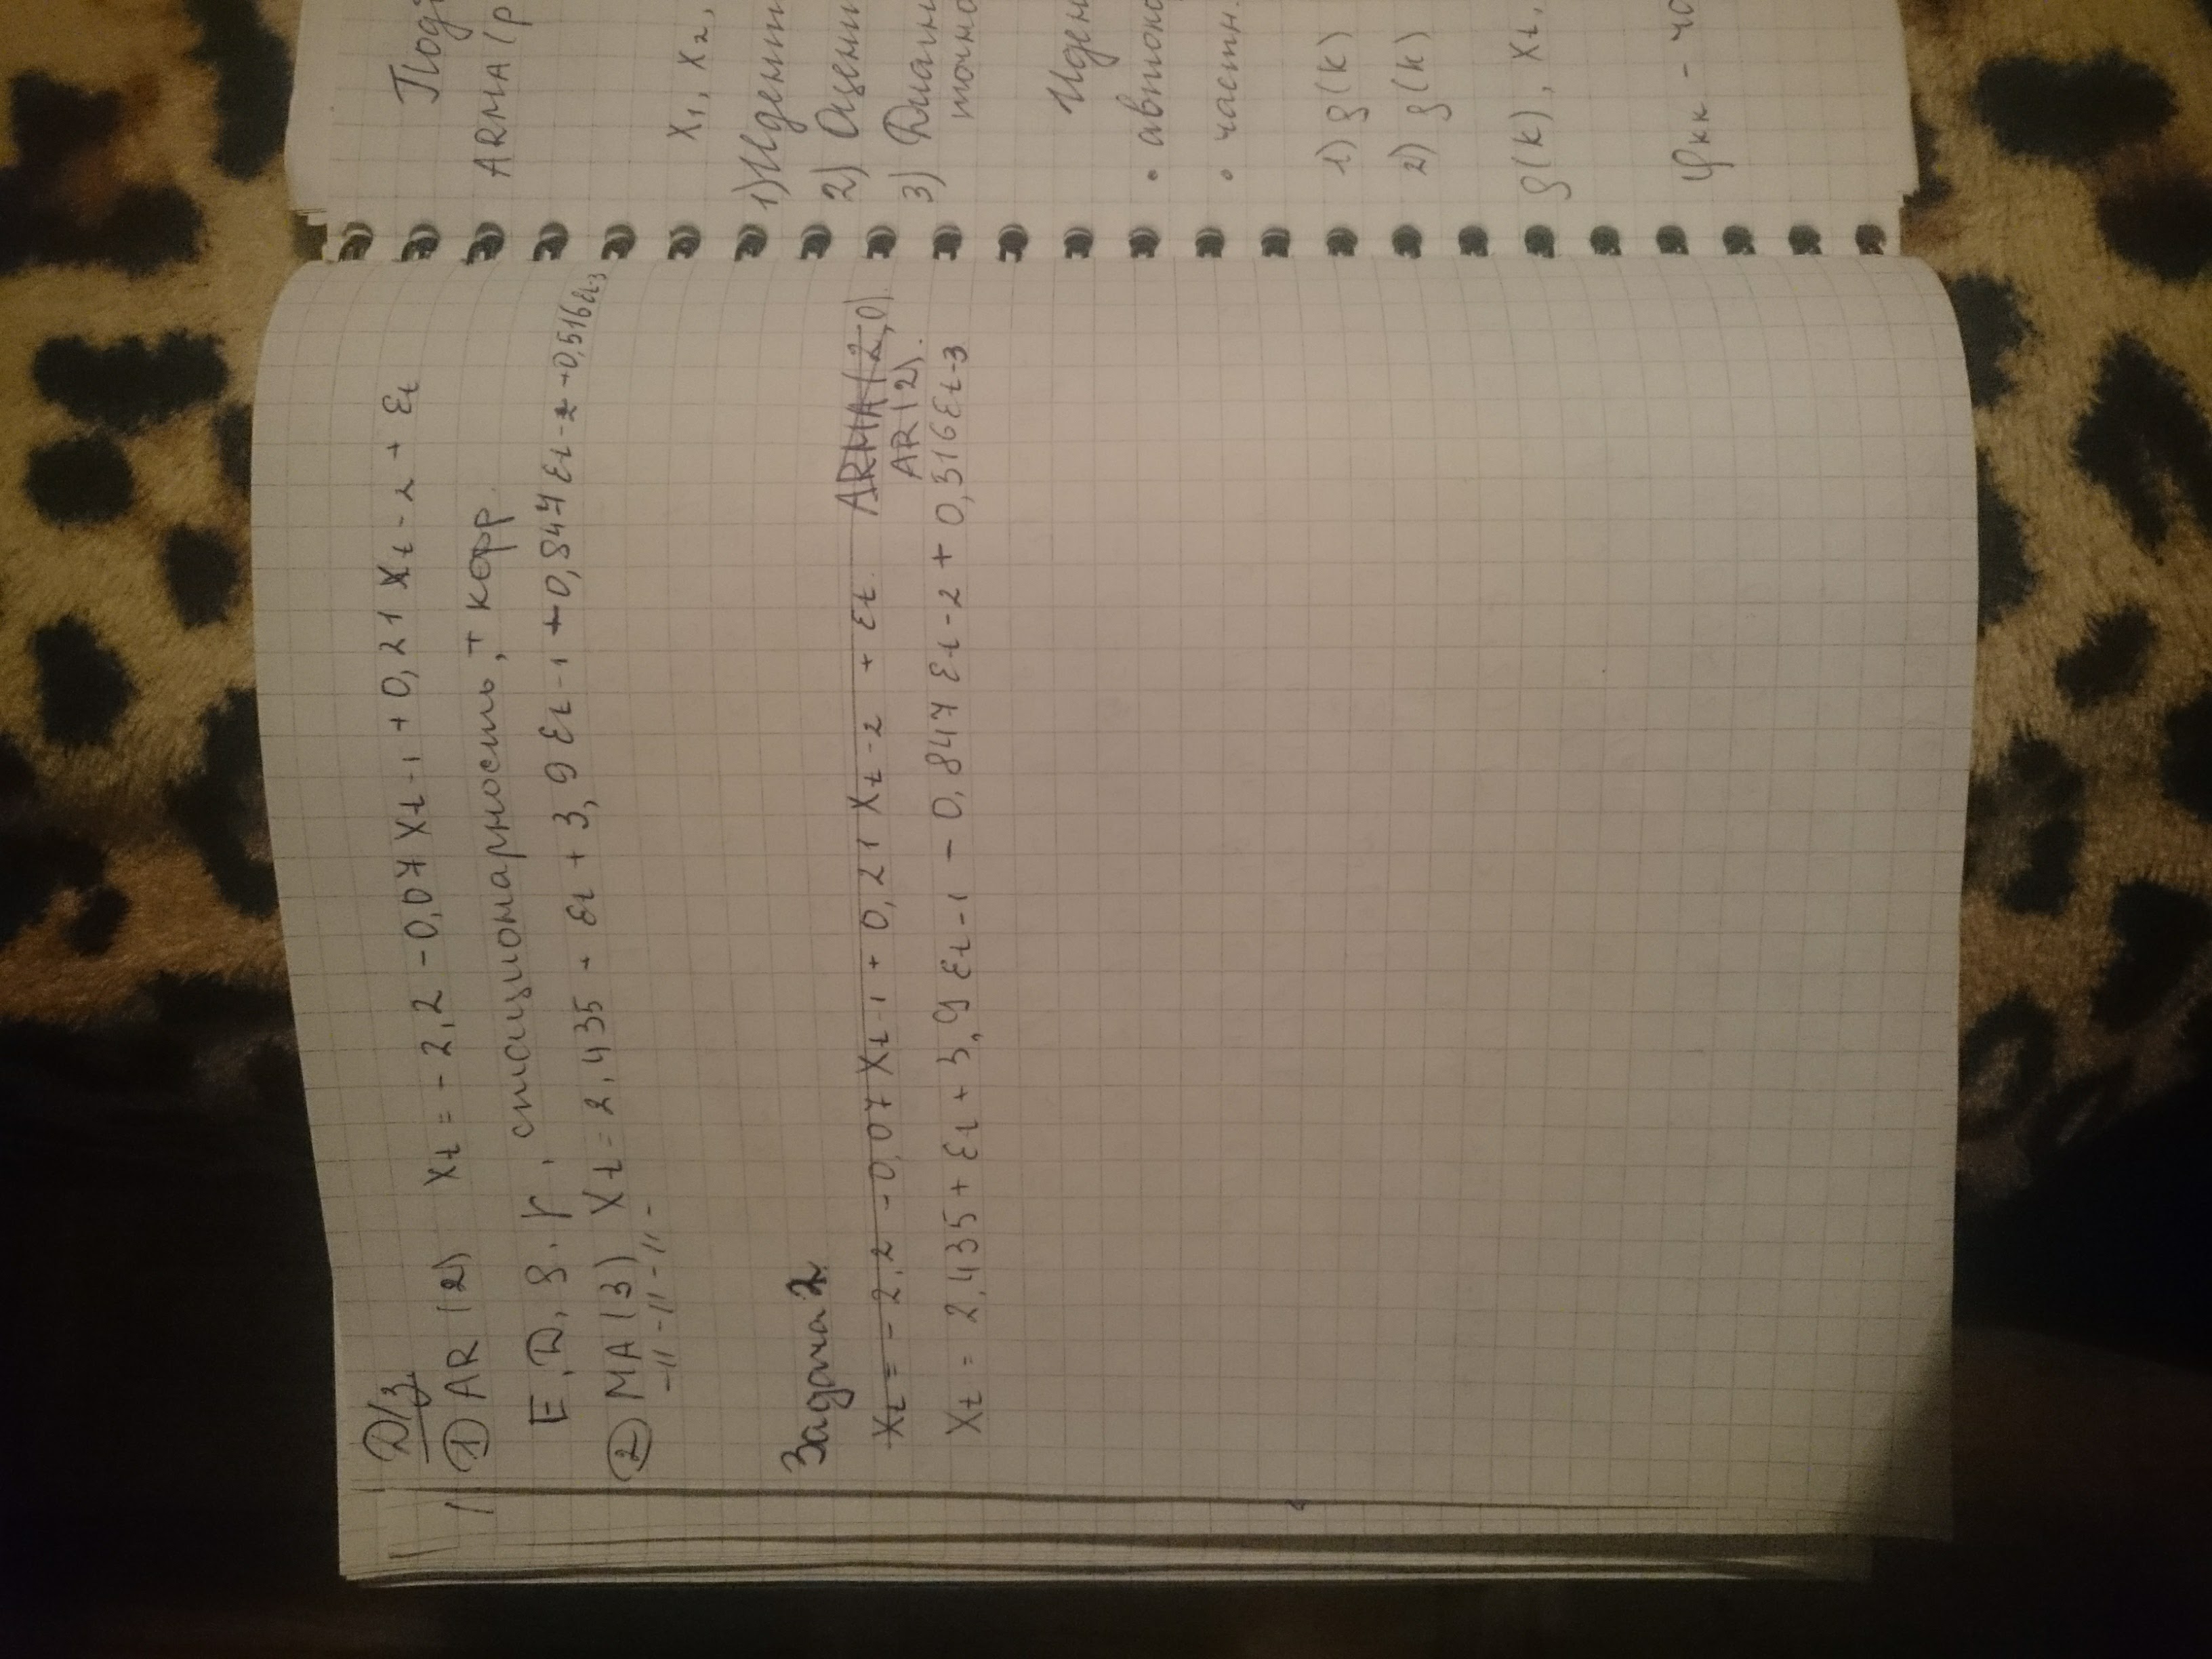 Д/з
① AR (2) Xt = - 2,2 - 0,07 Xt-1 + 0,21 Xt-2 + εt
E, D, ρ, γ, стационарность, + корр.
② MA (3) Xt = 2,435 + εt + 3,9 εt-1 + 0,847 εt-2 + 0,516 εt-3
-//-//-//-
Задача 2
Xt = - 2,2 - 0,07 Xt-1 + 0,21 Xt-2 + εt. ARMA (2,0).
AR (2).
Xt = 2,435 + εt + 3,9 εt-1 - 0,847 εt-2 + 0,516 εt-3
ARMA (p
X1, X2,
1)
2)
3)
•
• частн.
1) ρ(k)
2) ρ(k)
ρ(k), Xt,
φkk -